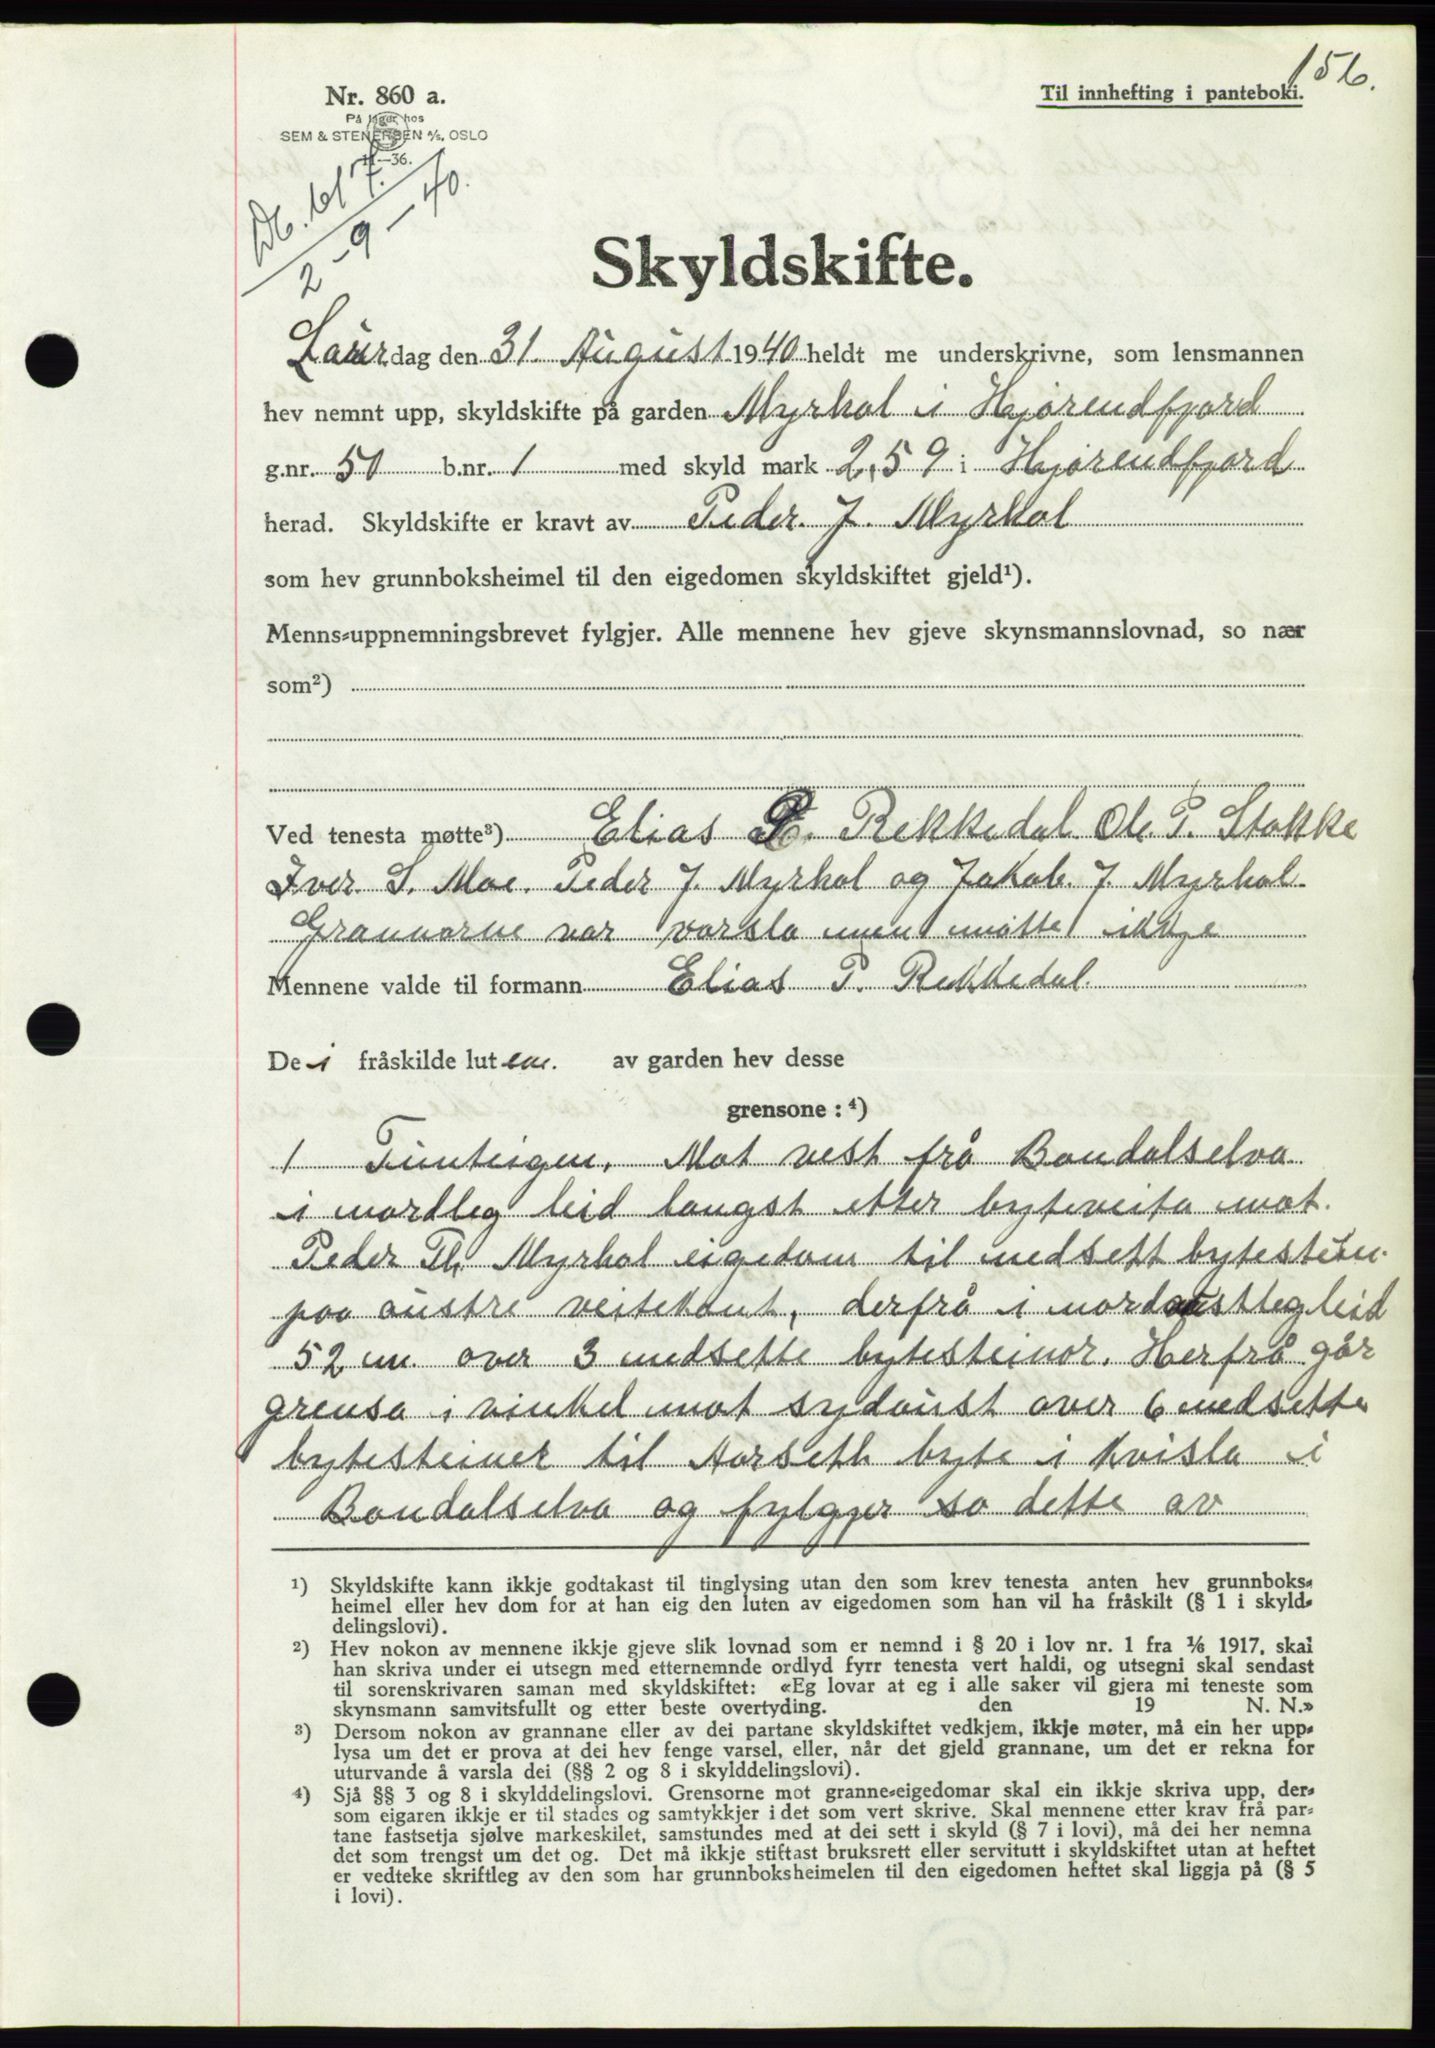 156.
Nr. 860 a.
Til innhefting i panteboki.
På lager hos
SEM & STENERSEN A/S, OSLO
11—36.
Db. bl 7.
2-9-40.
Skyldskifte.
Laurdag den 31. August 1940 heldt me underskrivne, som lensmannen
hev nemnt upp, skyldskifte på garden Myrhol i Hjørendfjord
g.nr. 50 b.nr. 1 med skyld mark 2,59 i Hjørendfjord
herad. Skyldskifte er kravt av Peder. J. Myrhol
som hev grunnboksheimel til den eigedomen skyldskiftet gjeld¹).
Menns-uppnemningsbrevet fylgjer. Alle mennene hev gjeve skynsmannslovnad, so nær
som²)
Ved tenesta møtte³) Elias P. Rekkedal Ole P. Stokke
Iver S. Moe. Peder J. Myrhol og Jakob. J. Myrhol.
Grannarne var varsla men møtte ikkje
Mennene valde til formann Elias P. Rekkedal.
De i fråskilde luten. av garden hev desse
grensone : ⁴)
1 Tunteigen. Mot vest frå Bondalselva
i nordleg leid langst etter byteveita mot.
Peder Th. Myrhol eigedom til nedsett bytestein.
paa austre veitekant, derfrå i nordaustleg leid
52 m. over 3 nedsette bytesteinor. Herfrå går
grensa i vinkel mot sydaust over 6 nedsette
bytesteiner til Aarseth byte i Kvisla i
Bondalselva og fylgjer so dette av
¹) Skyldskifte kann ikkje godtakast til tinglysing utan den som krev tenesta anten hev grunnboks-
heimel eller hev dom for at han eig den luten av eigedomen som han vil ha fråskilt (§ 1 i skyld-
delingslovi).
²) Hev nokon av mennene ikkje gjeve slik lovnad som er nemnd i § 20 i lov nr. 1 fra 1/6 1917, skal
han skriva under ei utsegn med etternemnde ordlyd fyrr tenesta vert haldi, og utsegni skal sendast
til sorenskrivaren saman med skyldskiftet: «Eg lovar at eg i alle saker vil gjera mi teneste som
skynsmann samvitsfullt og etter beste overtyding. den 19 N. N.»
³) Dersom nokon av grannane eller av dei partane skyldskiftet vedkjem, ikkje møter, må ein her upp-
lysa um det er prova at dei hev fenge varsel, eller, når det gjeld grannane, um det er rekna for
uturvande å varsla dei (§§ 2 og 8 i skylddelingslovi).
⁴) Sjå §§ 3 og 8 i skylddelingslovi. Grensorne mot granne-eigedomar skal ein ikkje skriva upp, der-
som eigaren ikkje er til stades og samtykkjer i det som vert skrive. Skal mennene etter krav frå par-
tane fastsetja sjølve markeskilet, samstundes med at dei sett i skyld (§ 7 i lovi), må dei her nemna
det som trengst um det og. Det må ikkje stiftast bruksrett eller servitutt i skyldskiftet utan at heftet
er vedteke skriftleg av den som har grunnboksheimelen til den eigedomen heftet skal liggja på (§ 5
i lovi).